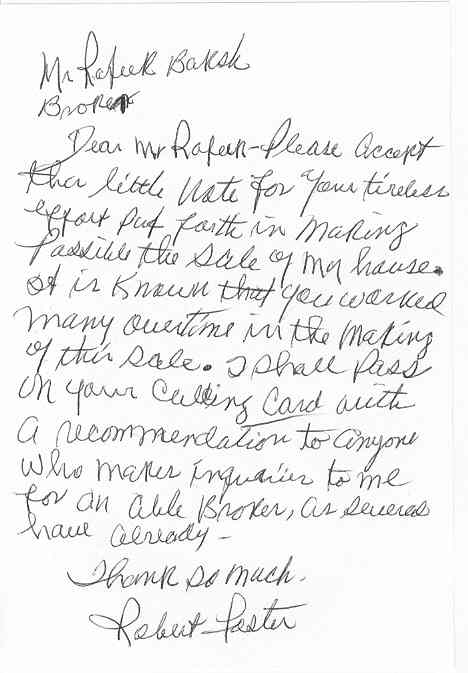 Mr Rafeek Baksh
Broker
Dear Mr Rafeek - Please Accept
this little Note for your tireless
effort put forth in Making
Possible the Sale of My house.
It is Known that you worked
Many overtime in the Making
of this Sale. I Shall Pass
on your Calling Card with
a recommendation to anyone
who makes inquiries to me
for an Able Broker, as several
have already -
Thank So much.
Robert Foster